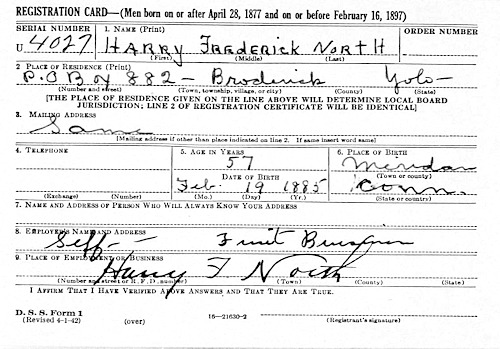 REGISTRATION CARD—(Men born on or after April 28, 1877 and on or before February 16, 1897)
SERIAL NUMBER 1. NAME (Print) ORDER NUMBER
U 4027 HARRY FREDERICK NORTH
(First) (Middle) (Last)
2 PLACE OF RESIDENCE (Print)
P.O Box 882 — Broderick Yolo —
(Number and street) (Town, township, village, or city) (County) (State)
[THE PLACE OF RESIDENCE GIVEN ON THE LINE ABOVE WILL DETERMINE LOCAL BOARD
JURISDICTION; LINE 2 OF REGISTRATION CERTIFICATE WILL BE IDENTICAL]
3. MAILING ADDRESS
Same
[Mailing address if other than place indicated on line 2. If same insert word same]
4. TELEPHONE 5. AGE IN YEARS 6. PLACE OF BIRTH
57 Meridan
DATE OF BIRTH (Town or county)
Feb. 19 1885 Conn.
(Exchange) (Number) (Mo.) (Day) (Yr.) (State or country)
7. NAME AND ADDRESS OF PERSON WHO WILL ALWAYS KNOW YOUR ADDRESS
8. EMPLOYER'S NAME AND ADDRESS
Self — Fruit
9. PLACE OF EMPLOYMENT OR BUSINESS
Harry F North
(Number and street or R. F. D. number) (Town) (County) (State)
I AFFIRM THAT I HAVE VERIFIED ABOVE ANSWERS AND THAT THEY ARE TRUE.
D. S. S. Form 1
(Revised 4-1-42) (over) 16—21630-2 (Registrant's signature)